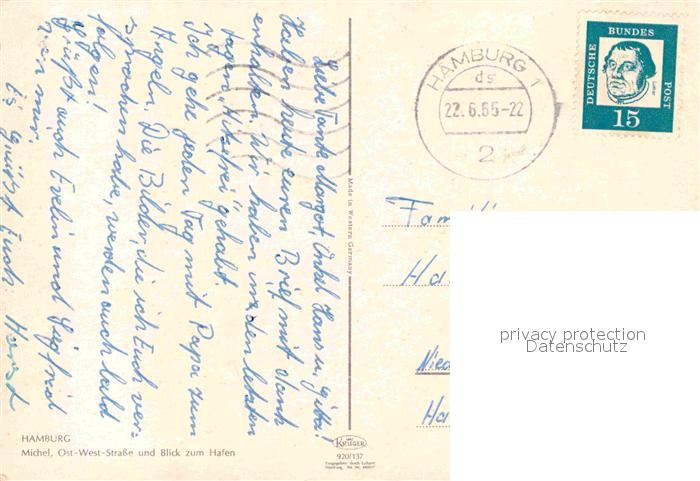 Liebe Tante Margot, Onkel Hans u. Gitta!
Haben heute euren Brief mit Dank
erhalten. Wir haben in den letzten
Tagen „Hitzefrei" gehabt.
Ich gehe jeden Tag mit Papa zum
Angeln. Die Bilder, die ich Euch ver-
sprochen habe, werden auch bald
folgen!
grüßt auch Evelin und Sigfrid
von mir.
Es grüßt Euch Horst
HAMBURG
Michel, Ost-West-Straße und Blick zum Hafen
Made in Western Germany
KRÜGER
920/137
HAMBURG 1
ds
22.6.65-22
2
DEUTSCHE
BUNDES
POST
Luther
15
Famili
Ha
Nied
Ha
privacy protection
Datenschutz